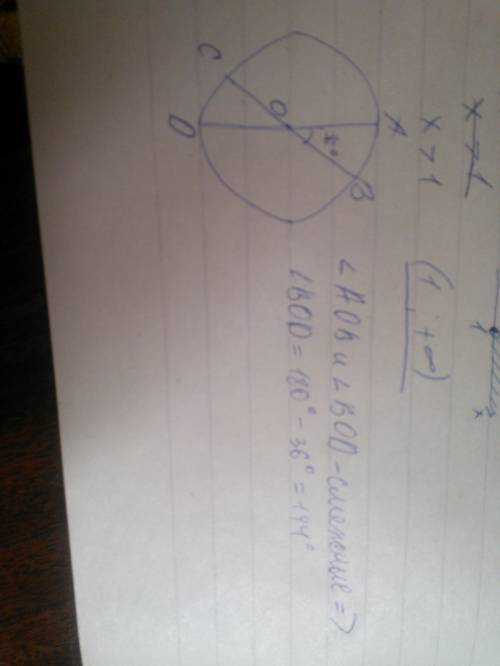 x > 1
x
1
x > 1
(1; +∞)
A
B
C
O
D
∠AOB и ∠BOD - смежные =>
∠BOD = 180° - 36° = 144°